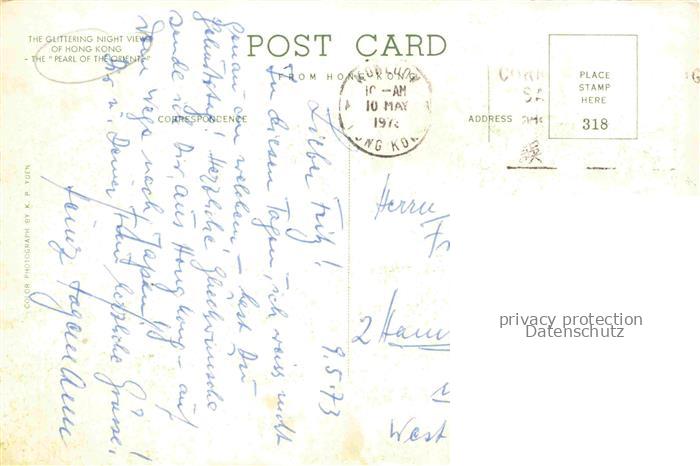 THE GLITTERING NIGHT VIEW
OF HONG KONG
- THE "PEARL OF THE ORIENT"
POST CARD
FROM HONG KONG
CORRESPONDENCE
ADDRESS
PLACE
STAMP
HERE
318
10 - AM
10 MAY
HONG KON
COLOR PHOTOGRAPH BY K. P. YUEN
9.5.73
Lieber Fritz!
In diesen Tagen, - ich weiss nicht
genau an welchem, - hast Du
Geburtstag! Herzliche Glückwünsche
sende ich Dir, aus Hongkong - auf
dem Wege nach Japan!
Dir u. Deiner Frau herzliche Grüsse!
Heinz
Herrn
Fr
2 Ham
West
privacy protection
Datenschutz